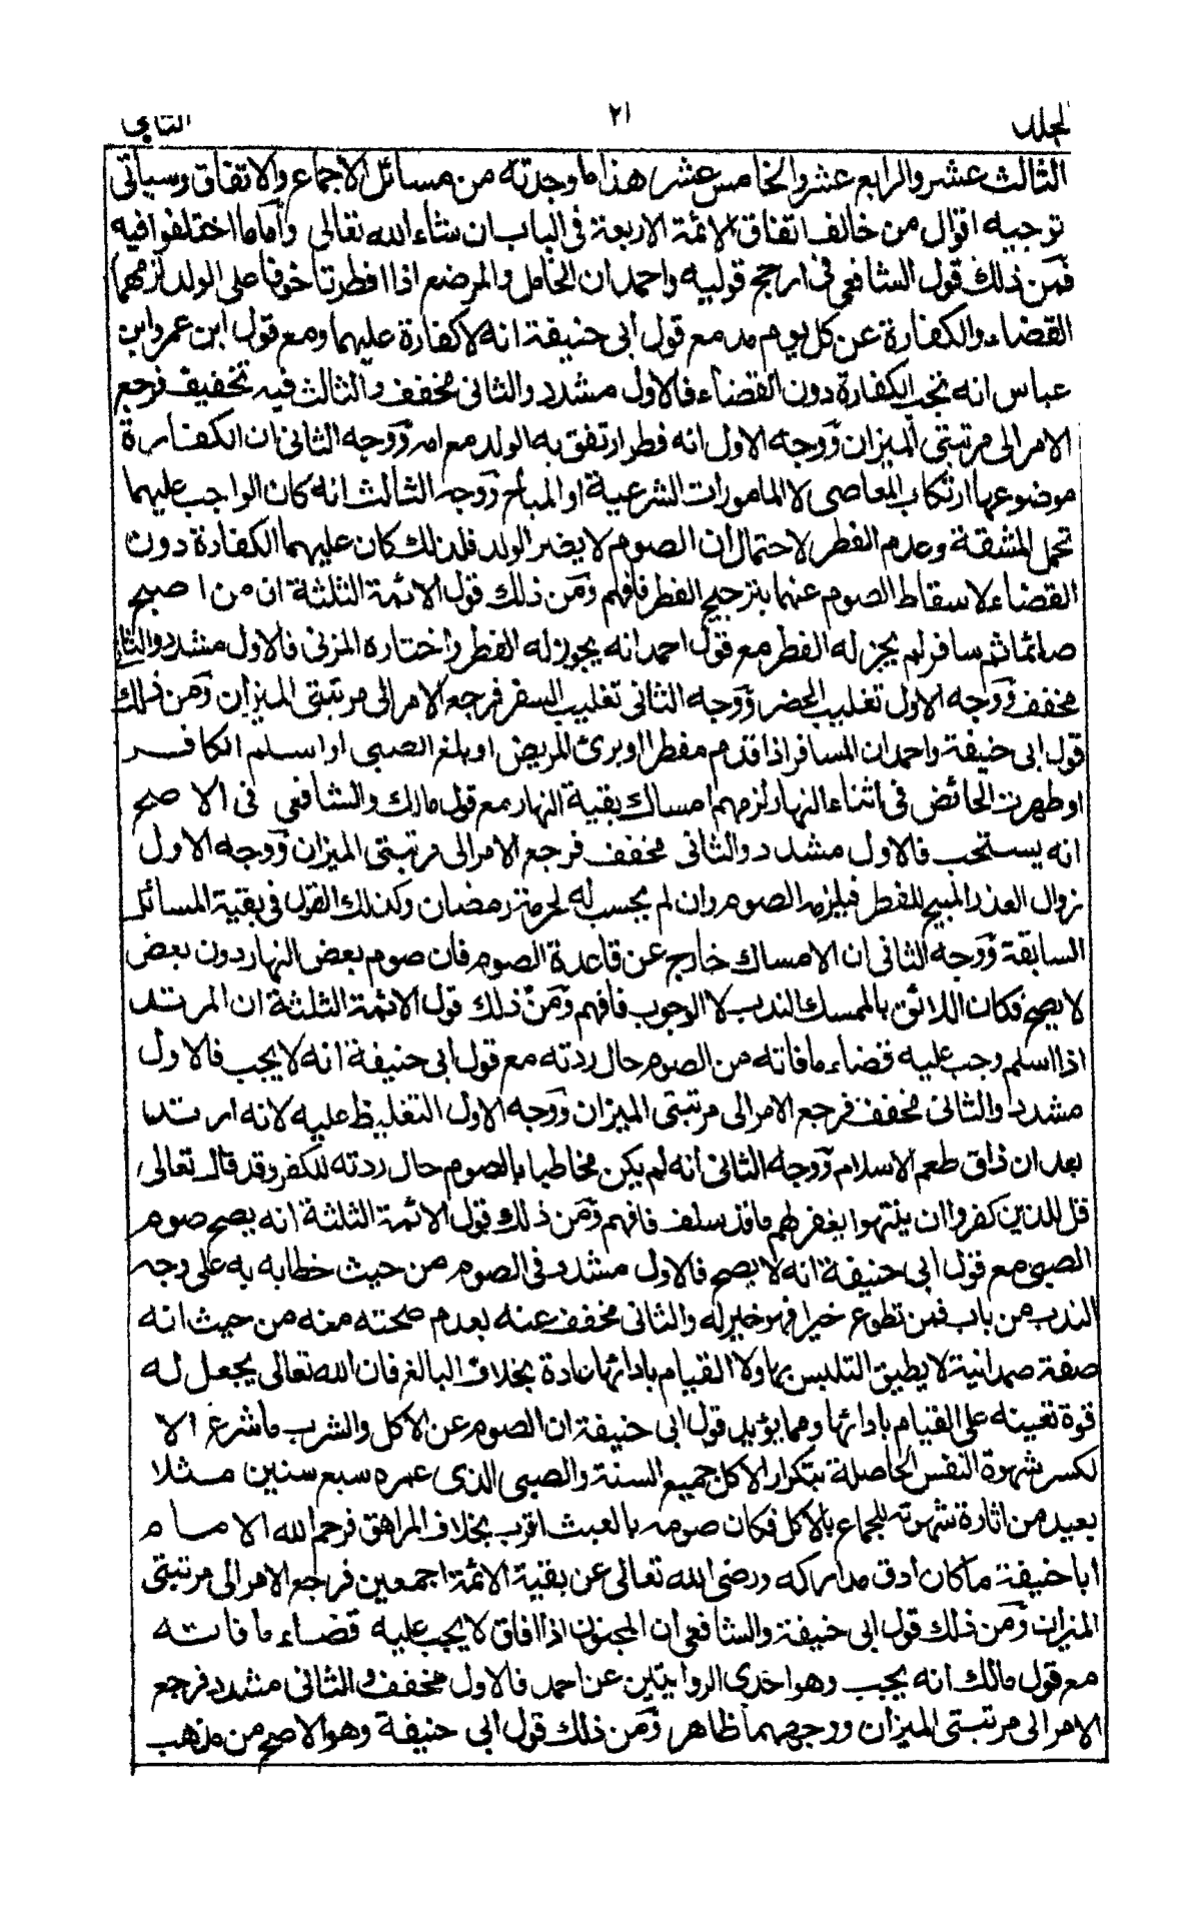 المجلد ٢١ الثاني
الثالث عشر والرابع عشر والخامس عشر هذا ما وجدته من مسائل الاجماع والاتفاق وسياتي
توجيه اقوال من خالف اتفاق الائمة الاربعة في الباب ان شاء الله تعالى واما ما اختلفوا فيه
فمن ذلك قول الشافعي في ارجح قوليه واحمد ان الحامل والمرضع اذا افطرتا خوفا على الولد لزمهما
القضاء والكفارة عن كل يوم مد مع قول ابي حنيفة انه لا كفارة عليهما ومع قول ابن عمر وابن
عباس انه تجب الكفارة دون القضاء فالاول مشدد والثاني مخفف والثالث فيه تخفيف فرجع
الامر الى مرتبتي الميزان ووجه الاول انه فطر ارتفق به الولد مع امه ووجه الثاني ان الكفارة
موضوعها ارتكاب المعاصي لا المامورات الشرعية او المباح ووجه الثالث انه كان الواجب عليهما
تحمل المشقة وعدم الفطر لاحتمال ان الصوم لا يضر الولد فلذلك كان عليهما الكفارة دون
القضاء لاسقاط الصوم عنهما بترجيح الفطر فافهم ومن ذلك قول الائمة الثلثة ان من اصبح
صائما ثم سافر لم يجز له الفطر مع قول احمد انه يجوز له الفطر واختاره المزني فالاول مشدد والثاني
مخفف ووجه الاول تغليب الحضر ووجه الثاني تغليب السفر فرجع الامر الى مرتبتي الميزان ومن ذلك
قول ابي حنيفة واحمد ان المسافر اذا قدم مفطرا او برئ المريض او بلغ الصبي او اسلم الكافر
او طهرت الحائض في اثناء النهار لزمهم امساك بقية النهار مع قول مالك والشافعي في الاصح
انه يستحب فالاول مشدد والثاني مخفف فرجع الامر الى مرتبتي الميزان ووجه الاول
زوال العذر المبيح للفطر فيلزمه الصوم وان لم يحسب له لحرمة رمضان وكذلك القول في بقية المسائل
السابقة ووجه الثاني ان الامساك خارج عن قاعدة الصوم فان صوم بعض النهار دون بعض
لا يصح فكان اللائق بالممسك الندب لا الوجوب فافهم ومن ذلك قول الائمة الثلثة ان المرتد
اذا اسلم وجب عليه قضاء ما فاته من الصوم حال ردته مع قول ابي حنيفة انه لا يجب فالاول
مشدد والثاني مخفف فرجع الامر الى مرتبتي الميزان ووجه الاول التغليظ عليه لانه ارتد
بعد ان ذاق طعم الاسلام ووجه الثاني انه لم يكن مخاطبا بالصوم حال ردته للكفر وقد قال تعالى
قل للذين كفروا ان ينتهوا يغفر لهم ما قد سلف فافهم ومن ذلك قول الائمة الثلثة انه يصح صوم
الصبي مع قول ابي حنيفة انه لا يصح فالاول مشدد في الصوم من حيث خطابه به على وجه
الندب من باب فمن تطوع خيرا فهو خير له والثاني مخفف عنه بعدم صحته منه من حيث انه
صفة صمدانية لا يطيق التلبس بها ولا القيام بادائها عادة بخلاف البالغ فان الله تعالى يجعل له
قوة تعينه على القيام بادائها ومما يؤيد قول ابي حنيفة ان الصوم عن الاكل والشرب ما شرع الا
لكسر شهوة النفس الحاصلة بتكرار الاكل جميع السنة والصبي الذي عمره سبع سنين مثلا
بعيد من اثارة شهوته للجماع بالاكل فكان صومه بالعبث اقرب بخلاف المراهق فرحم الله الامام
ابا حنيفة ما كان ادق مداركه ورضي الله تعالى عن بقية الائمة اجمعين فرجع الامر الى مرتبتي
الميزان ومن ذلك قول ابي حنيفة والشافعي ان المجنون اذا افاق لا يجب عليه قضاء ما فاته
مع قول مالك انه يجب وهو احدى الروايتين عن احمد فالاول مخفف والثاني مشدد فرجع
الامر الى مرتبتي الميزان ووجههما ظاهر ومن ذلك قول ابي حنيفة وهو الاصح من مذهب